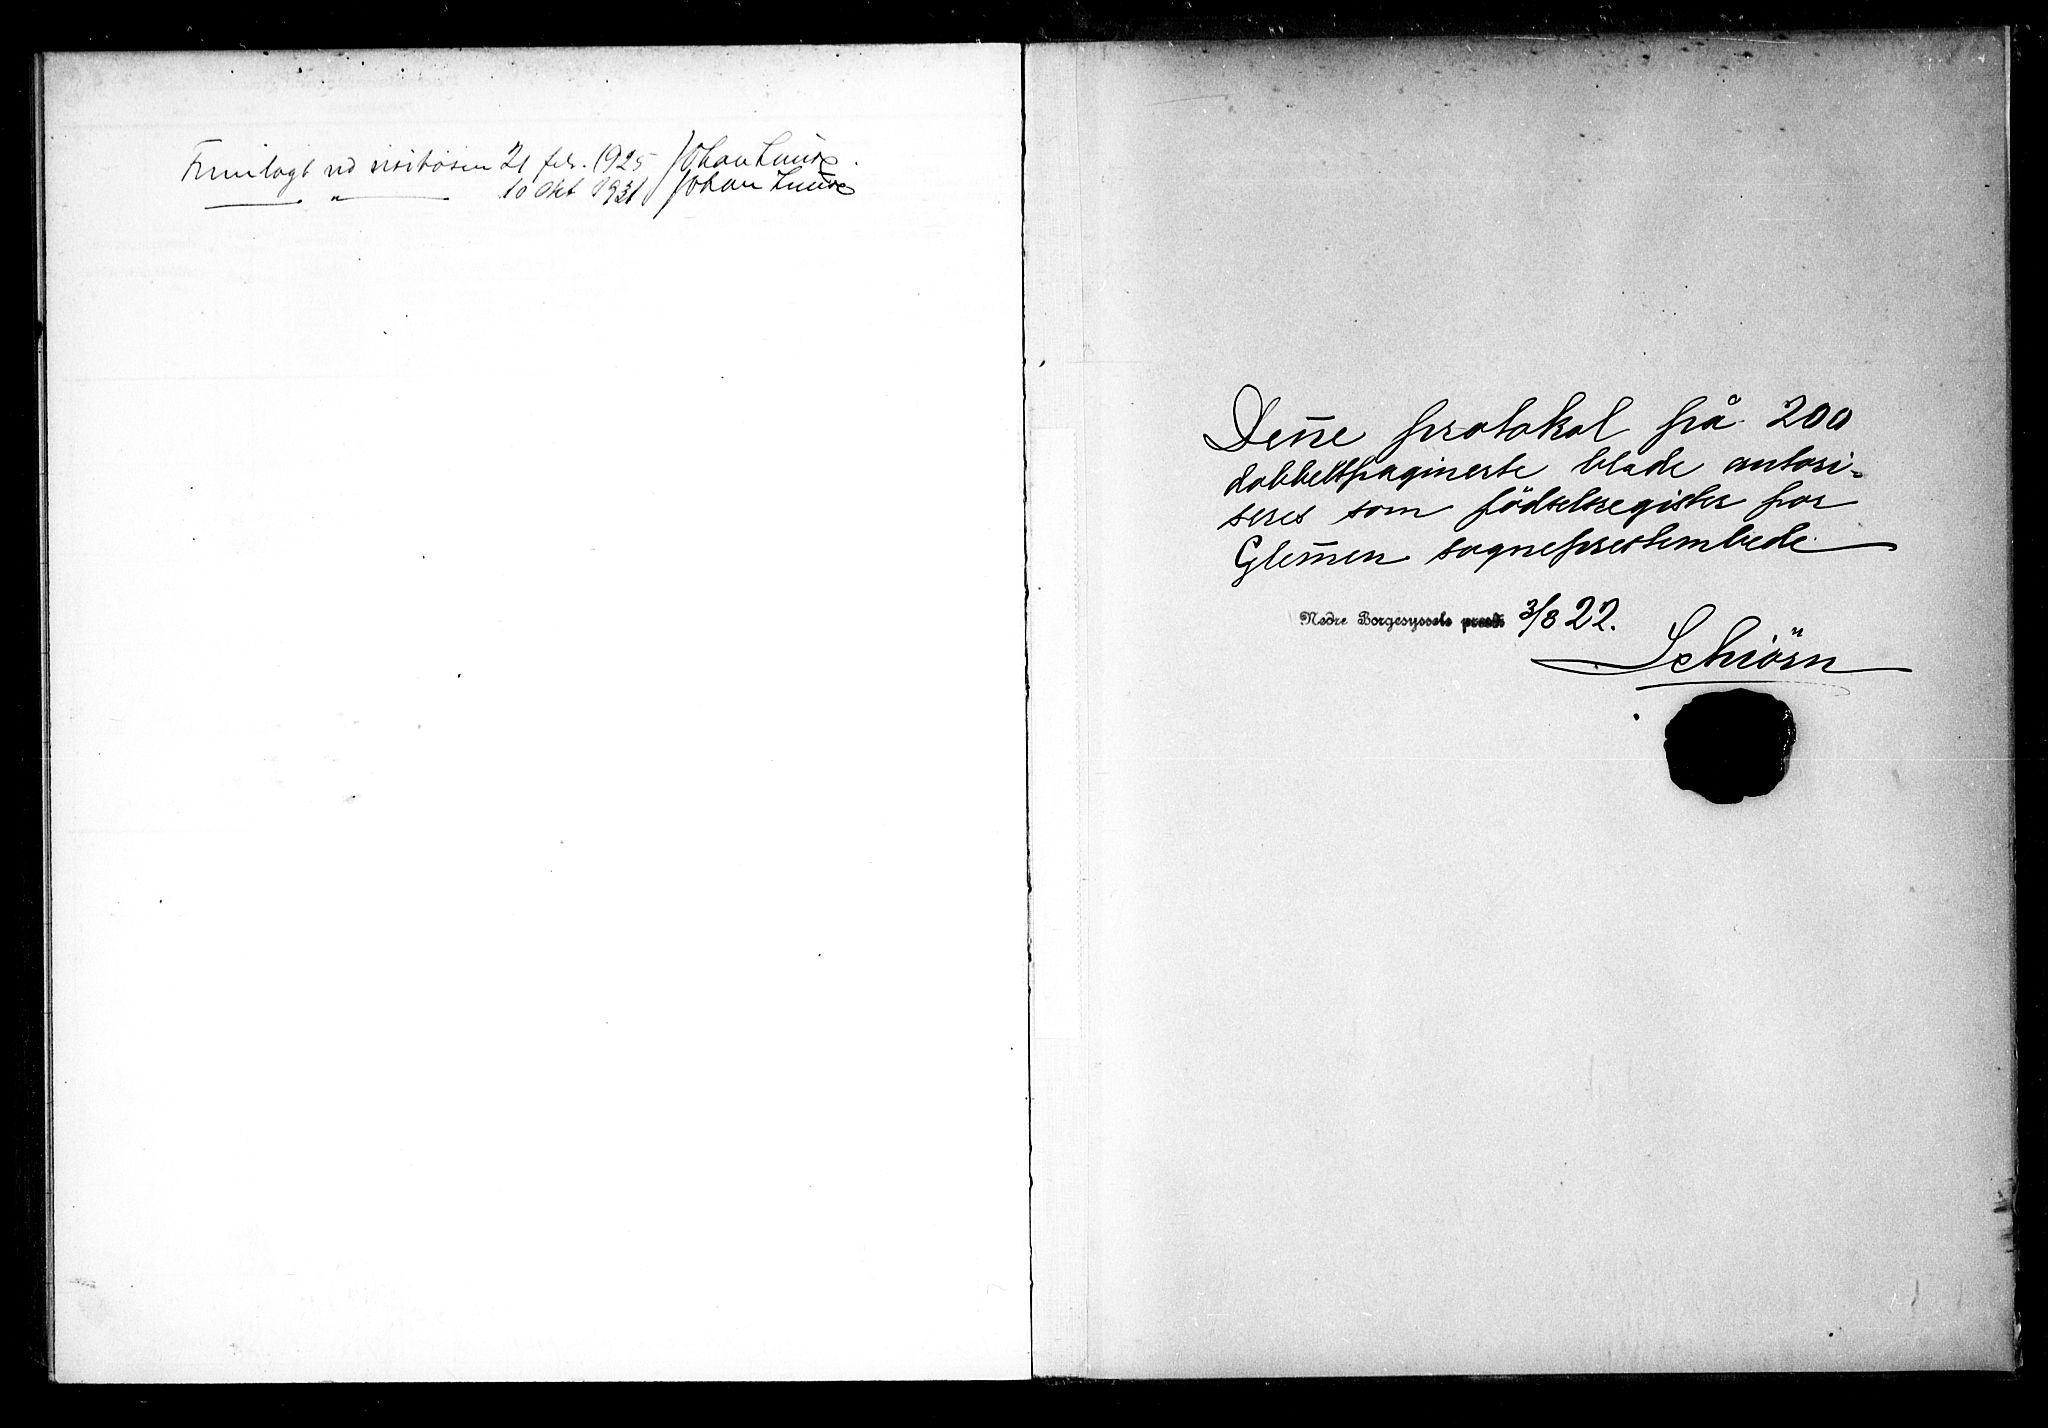 Fremlagt ved visitasen 21 febr. 1925 Johan Lunde.
" 10 Okt 1931 Johan Lunde
Denne protokol på 200
dobbeltpaginerte blade autori-
seres som födselsregister for
Glemmen sogneprestembede.
Nedre Borgesyssels prosti 3/8 22.
Schiörn